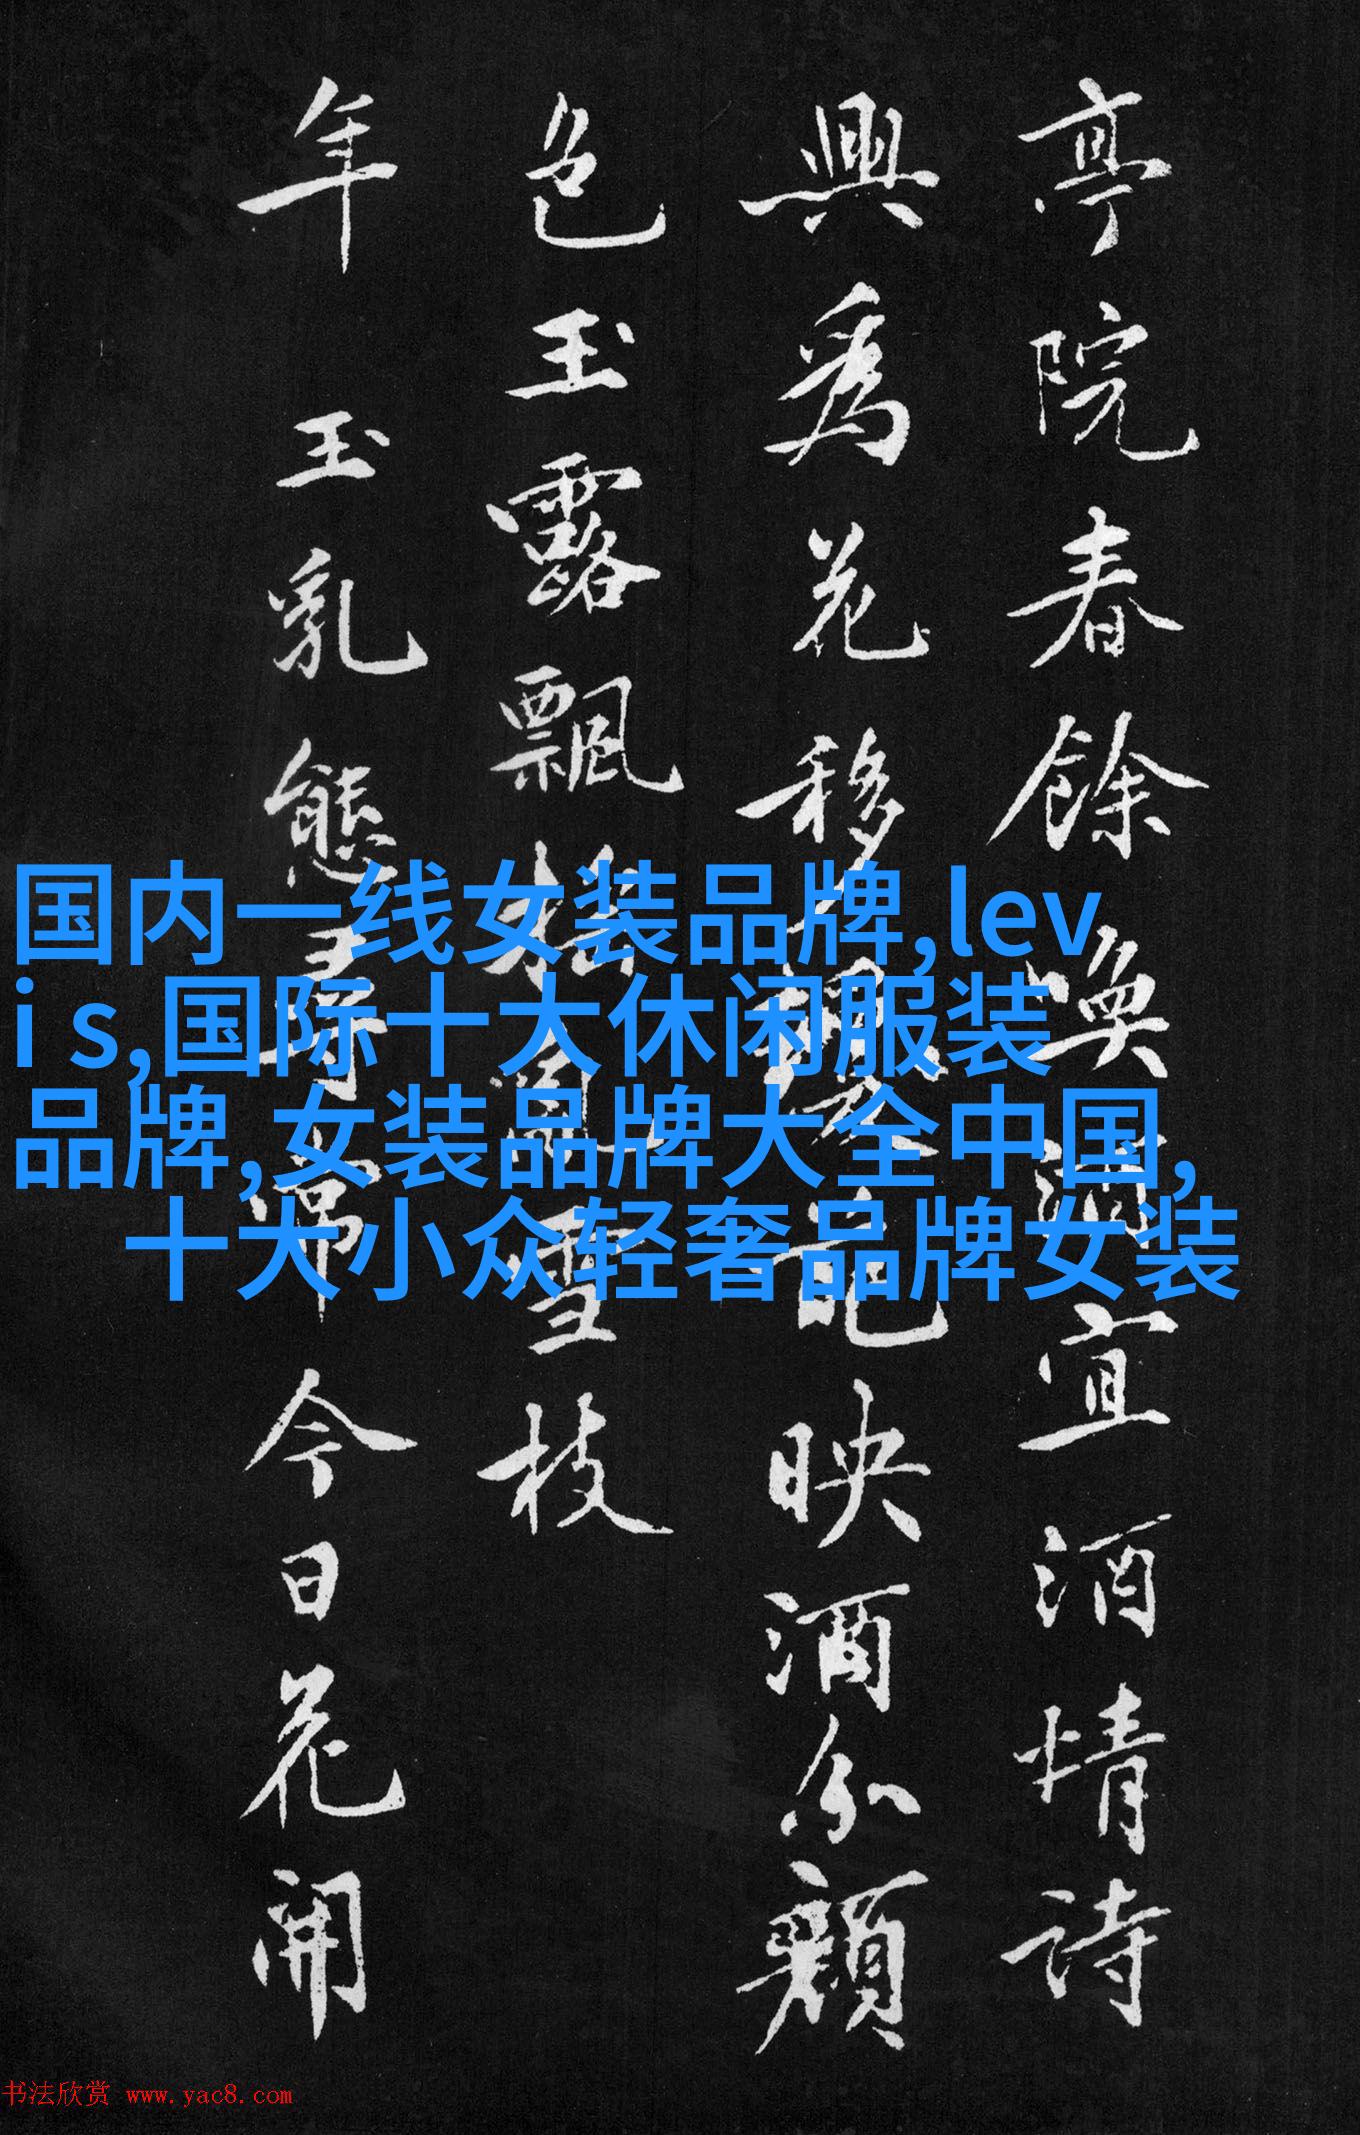 亭院春餘喚酒宜酒情詩
興為花移
映酒分顏
色玉露飄
雪枝
年 玉乳態尋常今日花開
国内一线女装品牌,lev
i s,国际十大休闲服装
品牌,女装品牌大全中国,
十大小众轻奢品牌女装
书法欣赏 www.yac8.com